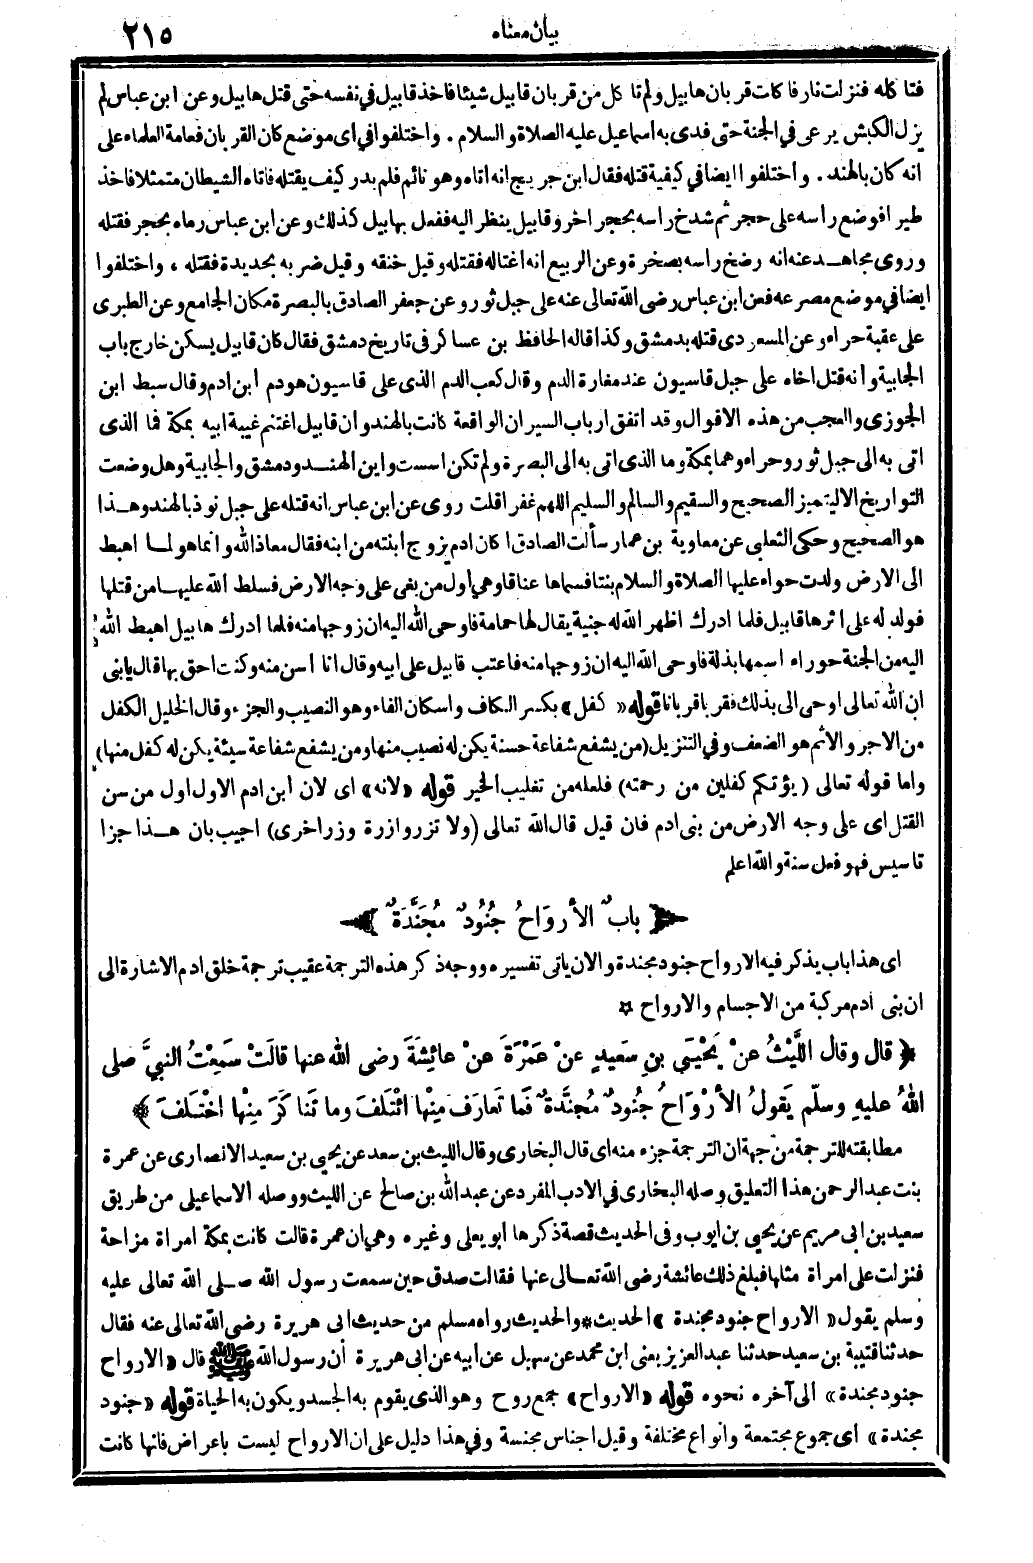 بيان معناه ٢١٥
فتاكله فنزلت نار فاكلت قربان هابيل ولم تاكل من قربان قابيل شيئا فاخذ قابيل في نفسه حتى قتل هابيل وعن ابن عباس لم
يزل الكبش يرعى في الجنة حتى فدى به اسماعيل عليه الصلاة والسلام . واختلفوا في أى موضع كان القربان فعامة العلماء على
انه كان بالهند . واختلفوا ايضا في كيفية قتله فقال ابن جريج انه اتاه وهو نائم فلم يدر كيف يقتله فاتاه الشيطان متمثلا فاخذ
طيرا فوضع رأسه على حجر ثم شدخ راسه بحجر اخر وقابيل ينظر اليه ففعل بهابيل كذلك وعن ابن عباس رماه بحجر فقتله
وروى مجاهد عنه انه رضخ راسه بصخرة وعن الربيع انه اغتاله فقتله وقيل خنقه وقيل ضربه بحديدة فقتله ، واختلفوا
ايضا في موضع مصرعه فعن ابن عباس رضى الله تعالى عنه على جبل ثور وعن جعفر الصادق بالبصرة مكان الجامع وعن الطبرى
على عقبة حراء وعن المسعودى قتله بدمشق وكذا قاله الحافظ بن عساكر في تاريخ دمشق فقال كان قابيل يسكن خارج باب
الجابية وأنه قتل اخاه على جبل قاسيون عند مغارة الدم وقال كعب الدم الذى على قاسيون هو دم ابن ادم وقال سبط ابن
الجوزى والعجب من هذه الاقوال وقد اتفق ارباب السير ان الواقعة كانت بالهند وأن قابيل اغتنم غيبة ابيه بمكة فما الذى
اتى به الى جبل ثور وحراء وهما بمكة وما الذى اتى به الى البصرة ولم تكن اسست واين الهند ودمشق والجابية وهل وضعت
التواريخ الا ليتميز الصحيح والسقيم والسالم والسليم اللهم غفرا قلت روى عن ابن عباس انه قتله على جبل نوذ بالهند وهذا
هو الصحيح وحكى الثعلبى عن معاوية بن عمار سألت الصادق اكان ادم يزوج ابنته من ابنه فقال معاذ الله وانما هو لما اهبط
الى الارض ولدت حواء عليها الصلاة والسلام بنتا فسماها عناقا وهي أول من بغى على وجه الارض فسلط الله عليها من قتلها
فولد له على اثرها قابيل فلما ادرك اظهر الله له جنية يقال لها حمامة فاوحى الله اليه ان زوجها منه فلما ادرك هابيل اهبط الله
اليه من الجنة حوراء اسمها بذلة فاوحى الله اليه ان زوجها منه فاعتب قابيل على ابيه وقال انا اسن منه وكنت احق بها قال يابنى
ان الله تعالى اوحى الى بذلك فقربا قربانا قوله «كفل» بكسر الكاف واسكان الفاء وهو النصيب والجزء وقال الخليل الكفل
من الاجر والاثم هو الضعف وفي التنزيل (من يشفع شفاعة حسنة يكن له نصيب منها ومن يشفع شفاعة سيئة يكن له كفل منها)
واما قوله تعالى ( يؤتكم كفلين من رحمته) فلعله من تغليب الخير قوله «لانه» اى لان ابن ادم الاول اول من سن
القتل اى على وجه الارض من بنى ادم فان قيل قال الله تعالى (ولا تزر وازرة وزر اخرى) اجيب بان هذا جزا
تاسيس فهو فعل سنة والله اعلم
باب الأرواحُ جُنُودٌ مُجَنَّدَةٌ
اى هذا باب يذكر فيه الارواح جنود مجندة والان ياتى تفسيره ووجه ذكر هذه الترجمة عقيب ترجمة خلق ادم الاشارة الى
ان بنى ادم مركبة من الاجسام والارواح *
﴿ قال وقال اللَّيْثُ عنْ يَحْيَى بنِ سَعِيدٍ عنْ عَمْرَةَ عنْ عائِشَةَ رضى الله عنها قالَتْ سَمِعْتُ النبيَّ صلى
اللهُ عليهِ وسلّم يَقولُ الأرْوَاحُ جُنُودٌ مُجَنَّدَةٌ فَما تَعارَفَ مِنْها ائْتَلَفَ وما تَناكَرَ مِنْها اخْتَلَفَ ﴾
مطابقته للترجمة من جهة ان الترجمة جزء منه اى قال البخارى وقال الليث بن سعد عن يحيى بن سعيد الانصارى عن عمرة
بنت عبد الرحمن هذا التعليق وصله البخارى في الادب المفرد عن عبدالله بن صالح عن الليث ووصله الاسماعيلى من طريق
سعيد بن ابى مريم عن يحيى بن ايوب وفى الحديث قصة ذكرها أبو يعلى وغيره وهي ان عمرة قالت كانت بمكة امراة مزاحة
فنزلت على امراة مثلها فبلغ ذلك عائشة رضى الله تعالى عنها فقالت صدق حبى سمعت رسول الله صلى الله تعالى عليه
وسلم يقول «الارواح جنود مجندة» الحديث* والحديث رواه مسلم من حديث ابى هريرة رضى الله تعالى عنه فقال
حدثنا قتيبة بن سعيد حدثنا عبد العزيز يعنى ابن محمد عن سهيل عن أبيه عن ابى هريرة أن رسول الله ﷺ قال «الارواح
جنود مجندة» الى آخره نحوه قوله «الارواح» جمع روح وهو الذى يقوم به الجسد ويكون به الحياة قوله «جنود
مجندة» أى جموع مجتمعة وأنواع مختلفة وقيل اجناس مجنسة وفي هذا دليل على ان الارواح ليست باعراض فانها كانت